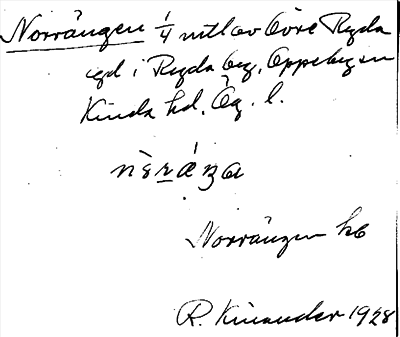 Norrängen 1/4 mtl av Övre Ryda
egd i Ryda by, Oppeby sn
Kinda hd. Ög. l.
Norrängen hb
R. Kinander 1928